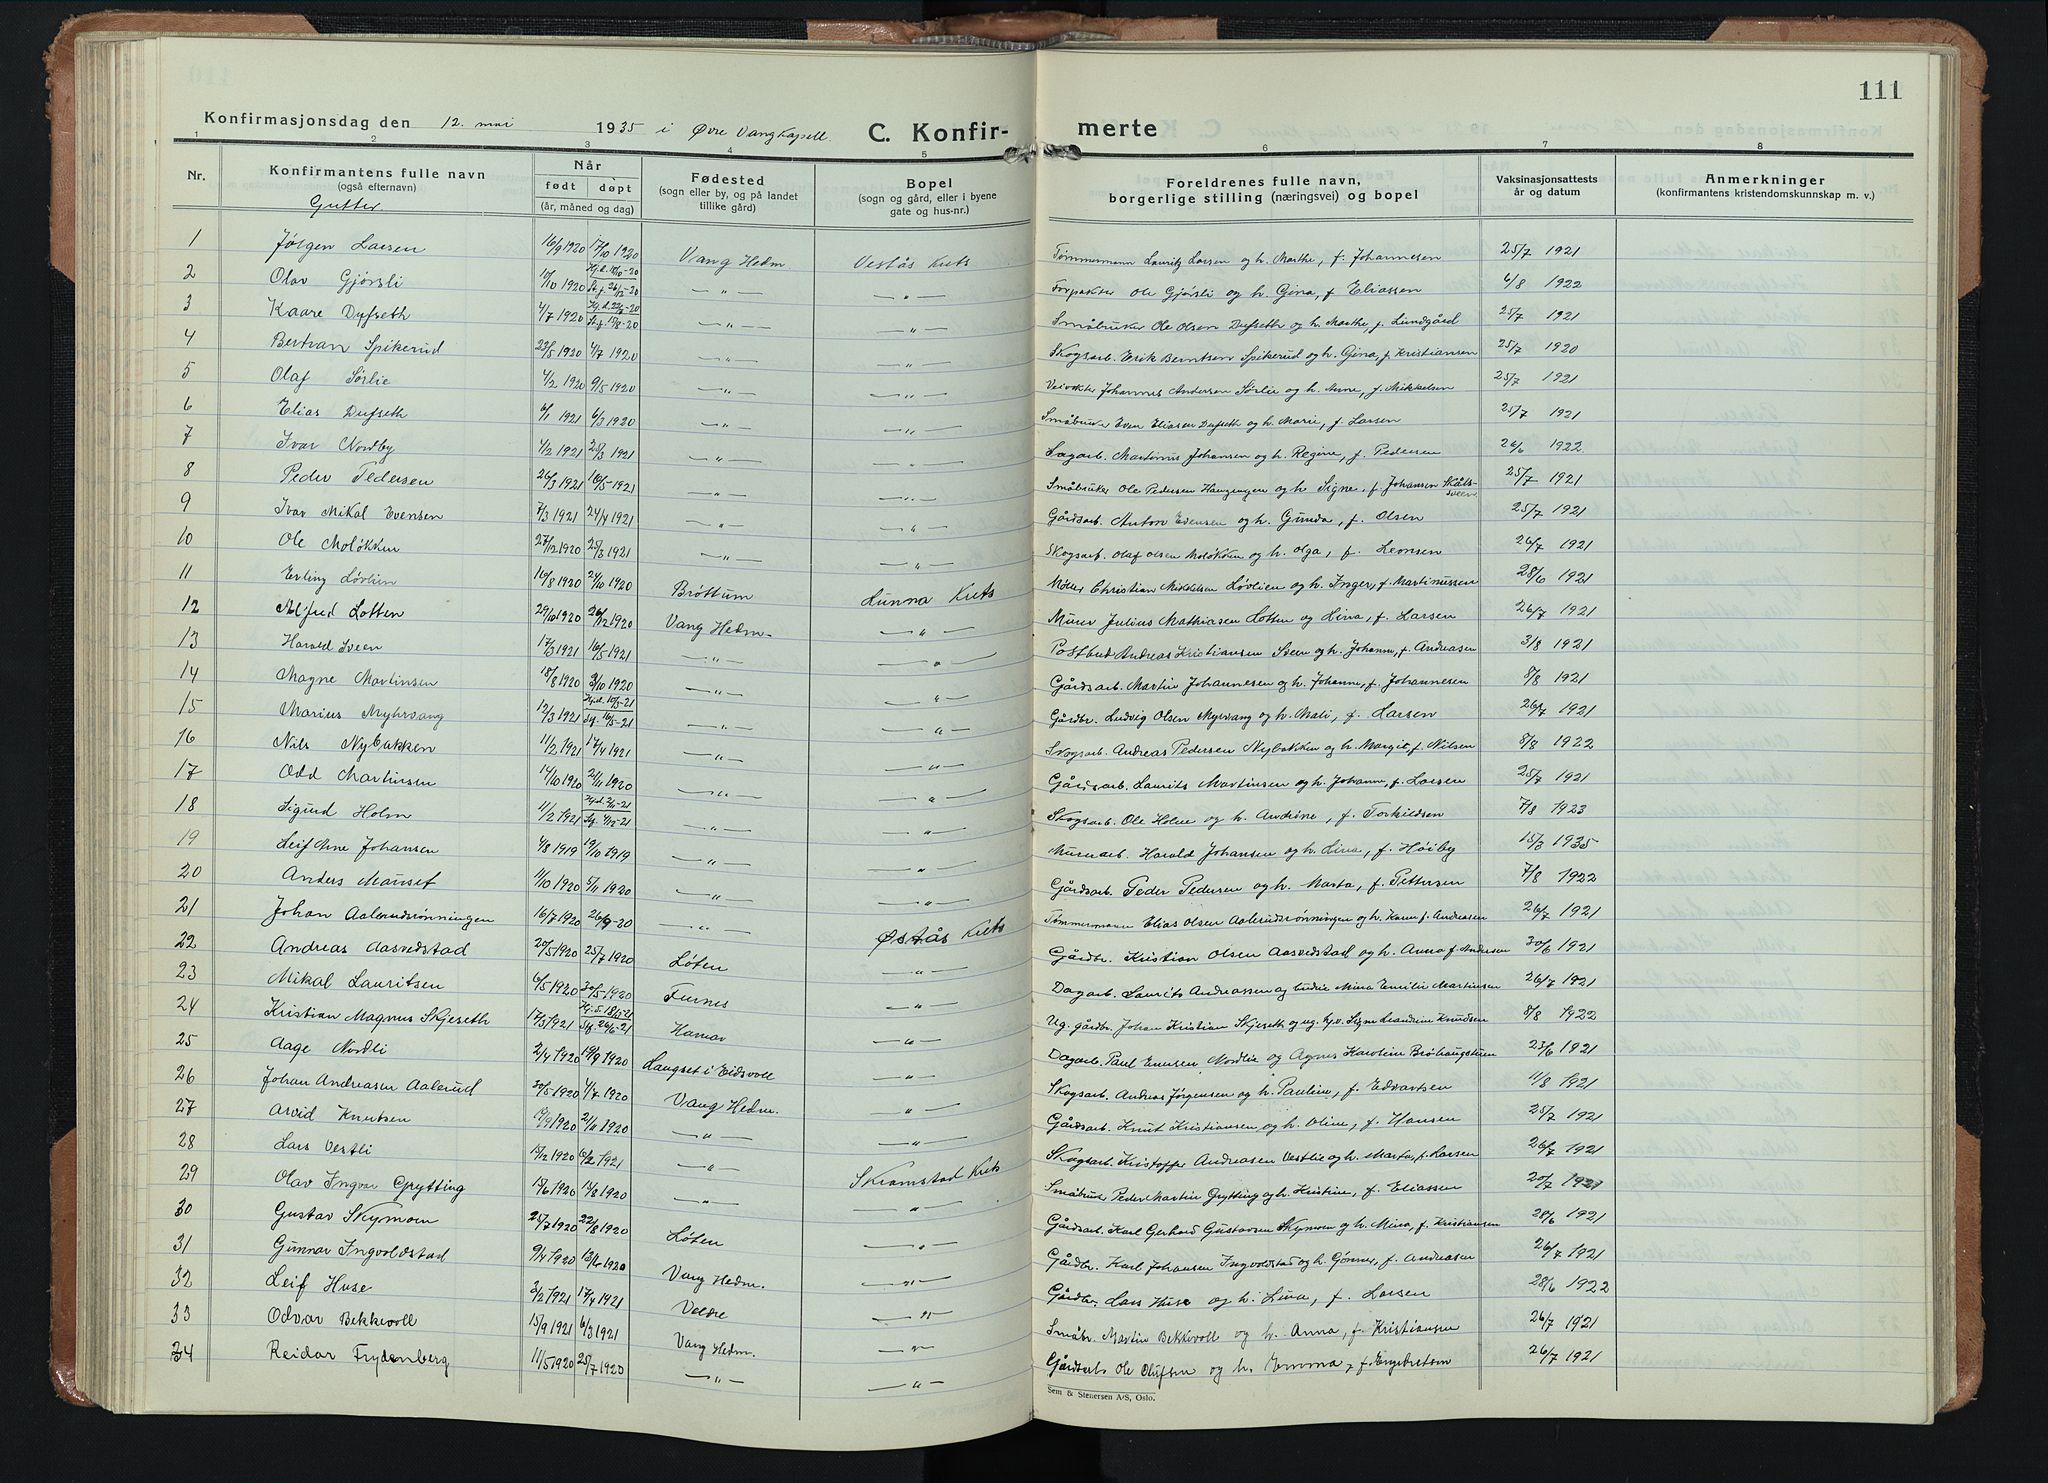 111
Konfirmasjonsdag den 12. mai 1935 i Øvre Vang Kapell. C. Konfirmerte
1 2 3 4 5 6 7 8
Nr. Konfirmantens fulle navn (også efternavn) Når født døpt (år, måned og dag) Fødested (sogn eller by, og på landet tillike gård) Bopel (sogn og gård, eller i byene gate og hus-nr.) Foreldrenes fulle navn, borgerlige stilling (næringsvei) og bopel Vaksinasjonsattests år og datum Anmerkninger (konfirmantens kristendomskunnskap m. v.)
Gutter.
1 Jørgen Larsen 16/9 1920 17/10 1920 Vang Hedm. Vestås Krets Tømmermann Lauritz Larsen og h. Marthe, f. Johannesen 25/7 1921
2 Olav Gjørsli 10/10 1920 — " — — " — Forpakter Ole Gjørsli og h. Gina, f. Eliassen 6/8 1922
3 Kaare Dufseth 4/7 1920 — " — — " — Småbruker Ole Olsen Dufseth og h. Marthe, f. Lundgård 25/7 1921
4 Bertran Spikerud 23/5 1920 4/7 1920 — " — — " — Skogsarb. Erik Berntsen Spikerud og h. Gina, f. Kristiansen 25/7 1920
5 Olaf Sørlie 4/2 1920 9/5 1920 — " — — " — Veivokter Johannes Andersen Sørlie og h. Anne, f. Mikkelsen 25/7 1921
6 Elias Dufseth 6/1 1921 6/3 1920 — " — — " — Småbruker Even Eliasen Dufseth og h. Marie, f. Larsen 25/7 1921
7 Ivar Nordby 4/2 1921 28/3 1921 — " — — " — Sagarb. Martinus Johansen og h. Regine, f. Pedersen 26/6 1922
8 Peder Pedersen 26/3 1921 16/5 1921 — " — — " — Småbruker Ole Pedersen Haugengen og h. Signe, f. Johansen
9 Ivar Mikal Evensen 7/3 1921 24/4 1921 — " — — " — Gårdsarb. Anton Evensen og h. Gunda, f. Olsen 25/7 1921
10 Ole Moløkken 27/12 1920 28/3 1921 — " — — " — Skogsarb. Olaf Olsen Moløkken og h. Olga, f. Leonsen 26/7 1921
11 Erling Løvlien 16/8 1920 24/10 1920 Brøttum Lunna Krets Møller Christian Mikkelsen Løvlien og h. Inger, f. Martinussen 28/6 1921
12 Alfred Lotten 29/10 1920 26/12 1920 Vang Hedm. — " — Murer Julius Mathiasen Lotten og Lina, f. Larsen 26/7 1921
13 Harald Sveen 17/3 1921 16/5 1921 — " — — " — Postbud Andreas Kristiansen Sveen og h. Johanne, f. Andreasen 3/8 1921
14 Magne Martinsen 18/8 1920 3/10 1920 — " — — " — Gårdsarb. Martin Johannesen og h. Johanne, f. Johannesen 8/8 1921
15 Marius Myhrvang 12/3 1921 — " — — " — Gårdbr. Ludvig Olsen Myrvang og h. Mali, f. Larsen 26/7 1921
16 Nils Nybakken 11/2 1921 17/4 1921 — " — — " — Skogsarb. Andreas Pedersen Nybakken og h. Margit, f. Nilsen 8/8 1922
17 Odd Martinsen 14/10 1920 21/11 1920 — " — — " — Gårdsarb. Laurits Martinsen og h. Johanne, f. Larsen 25/7 1921
18 Sigurd Holm 11/2 1921 — " — — " — Skogsarb. Ole Holm og h. Andrine, f. Torkildsen 7/8 1923
19 Leif Arne Johansen 4/8 1919 19/10 1919 — " — — " — Murearb. Harald Johansen og h. Lina, f. Høiby 15/3 1935
20 Anders Mauset 11/10 1920 5/11 1920 — " — — " — Gårdsarb. Peder Pedersen og h. Marta, f. Pettersen 7/8 1922
21 Johan Aalerudsrønningen 16/7 1920 26/9-20 — " — Østås Krets Tømmermann Elias Olsen Aalerudsrønningen og h. Karen f. Andreasen 26/7 1921
22 Andreas Aasvedstad 20/5 1920 25/7 1920 Løten — " — Gårdbr. Kristian Olsen Aasvedstad og h. Anna f. Andersen 30/6 1921
23 Mikal Lauritsen 6/5 1920 30/5 1920 Furnes — " — Dagarb. Laurits Andreassen og hustru Mina Emilie Martinsen 26/7 1921
24 Kristian Magnus Skjeseth 17/3 1921 Hamar — " — Ug. gårdbr. Johan Kristian Skjeseth og ug. Signe Leandrine Knudsen 8/8 1922
25 Aage Nordli 2/4 1920 19/9 1920 Haugset i Eidsvoll — " — Dagarb. Paul Enersen Nordlie og Agnes Karoline Brøhaugstuen 23/6 1921
26 Johan Andreasen Aalerud 30/5 1920 4/7 1920 Vang Hedm. — " — Skogsarb. Andreas Jørgensen og h. Pauline, f. Edvartsen 11/8 1921
27 Arvid Knutsen 19/9 1920 21/11 1920 — " — — " — Gårdsarb. Knut Kristiansen og h. Oline, f. Hansen 25/7 1921
28 Lars Vestli 15/12 1920 6/2 1921 — " — Skramstad Krets Skogsarb. Kristoffer Andreasen Vestlie og h. Marta, f. Larsen 26/7 1921
29 Olav Ingvar Grytting 15/6 1920 15/8 1920 — " — — " — Småbruker Peder Martin Grytting og h. Kristine, f. Eliassen 20/7 1921
30 Gustav Skymoen 25/7 1920 22/8 1920 Løten — " — Gårdsarb. Karl Gerhard Gustavsen Skymoen og h. Mina, f. Kristiansen 28/6 1921
31 Gunnar Ingvoldstad 9/4 1920 13/6 1920 Vang Hedm. — " — Gårdbr. Karl Johansen Ingvoldstad og h. Gønner, f. Andreasen 26/7 1921
32 Leif Huse 3/2 1921 17/4 1921 Veldre — " — Gårdbr. Lars Huse og h. Lina, f. Larsen 28/6 1922
33 Odvar Bekkevoll 15/9 1921 6/3 1921 Vang Hedm. — " — Småbr. Martin Bekkevoll og h. Anna, f. Kristiansen 26/7 1921
34 Reidar Frydenberg 11/5 1920 25/7 1920 — " — — " — Gårdsarb. Ole Olufsen og h. Emma, f. Engebretsen 26/7 1921
Sem & Stenersen A/S, Oslo.